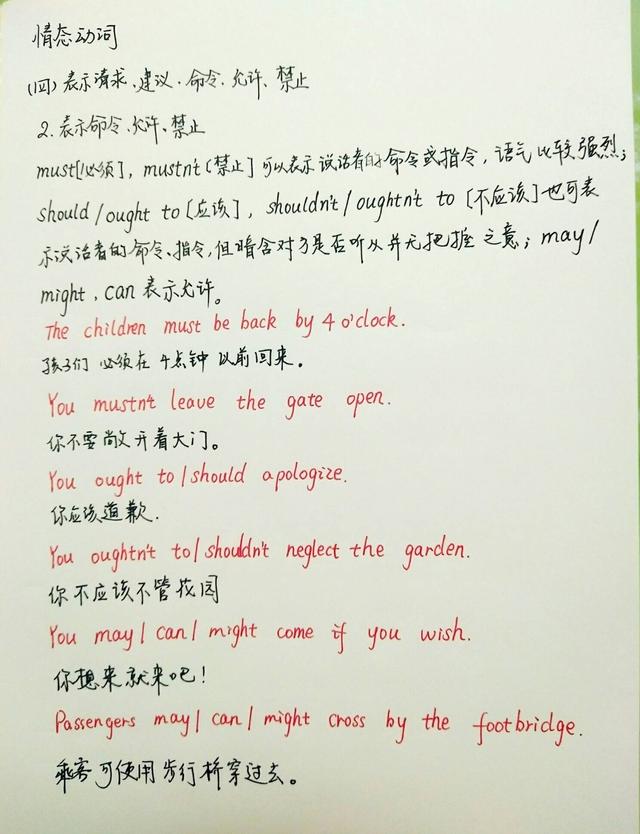 情态动词
(四)表示请求、建议、命令、允许、禁止
2.表示命令、允许、禁止
must[必须],mustn't[禁止]可以表示说话者的命令或指令,语气比较强烈;
should/ought to[应该],shouldn't/oughtn't to[不应该]也可表
示说话者的命令、指令,但暗含对方是否听从并无把握之意;may/
might、can表示允许。
The children must be back by 4 o'clock.
孩子们必须在4点钟以前回来。
You mustn't leave the gate open.
你不要敞开着大门。
You ought to/should apologize.
你应该道歉.
You oughtn't to/shouldn't neglect the garden.
你不应该不管花园
You may/can/might come if you wish.
你想来就来吧!
Passengers may/can/might cross by the footbridge.
乘客可使用步行桥穿过去。